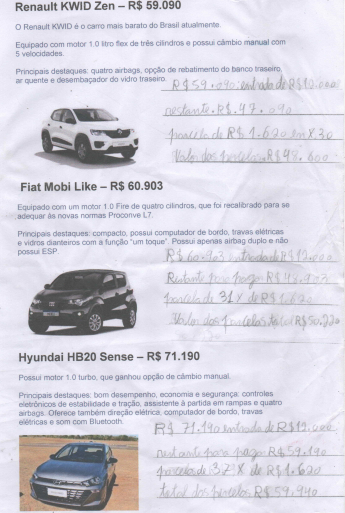 Renault KWID Zen – R$ 59.090
O Renault KWID é o carro mais barato do Brasil atualmente.
Equipado com motor 1.0 litro flex de três cilindros e possui câmbio manual com
5 velocidades.
Principais destaques: quatro airbags, opção de rebatimento do banco traseiro,
ar quente e desembaçador do vidro traseiro.
R$59.090 entrada de R$12.000
restante. R$.47.090
parcela de R$ 1.620 em X.30
Valor das parcelas. R$48.600
Fiat Mobi Like – R$ 60.903
Equipado com um motor 1.0 Fire de quatro cilindros, que foi recalibrado para se
adequar às novas normas Proconve L7.
Principais destaques: compacto, possui computador de bordo, travas elétricas
e vidros dianteiros com a função “um toque”. Possui apenas airbag duplo e não
possui ESP.
R$ 60.903 entrada de R$12.000
Restante para pagar R$ 48.903
parcela de 31 X de R$1.620
Valor das parcelas total R$50.220
Hyundai HB20 Sense – R$ 71.190
Possui motor 1.0 turbo, que ganhou opção de câmbio manual.
Principais destaques: bom desempenho, economia e segurança: controles
eletrônicos de estabilidade e tração, assistente à partida em rampas e quatro
airbags. Oferece também direção elétrica, computador de bordo, travas
elétricas e som com Bluetooth.
R$ 71.190 entrada de R$12.000.
restante para pagar R$ 59.190
parcela de 37 X de R$1.620
total das parcelas R$ 59.940